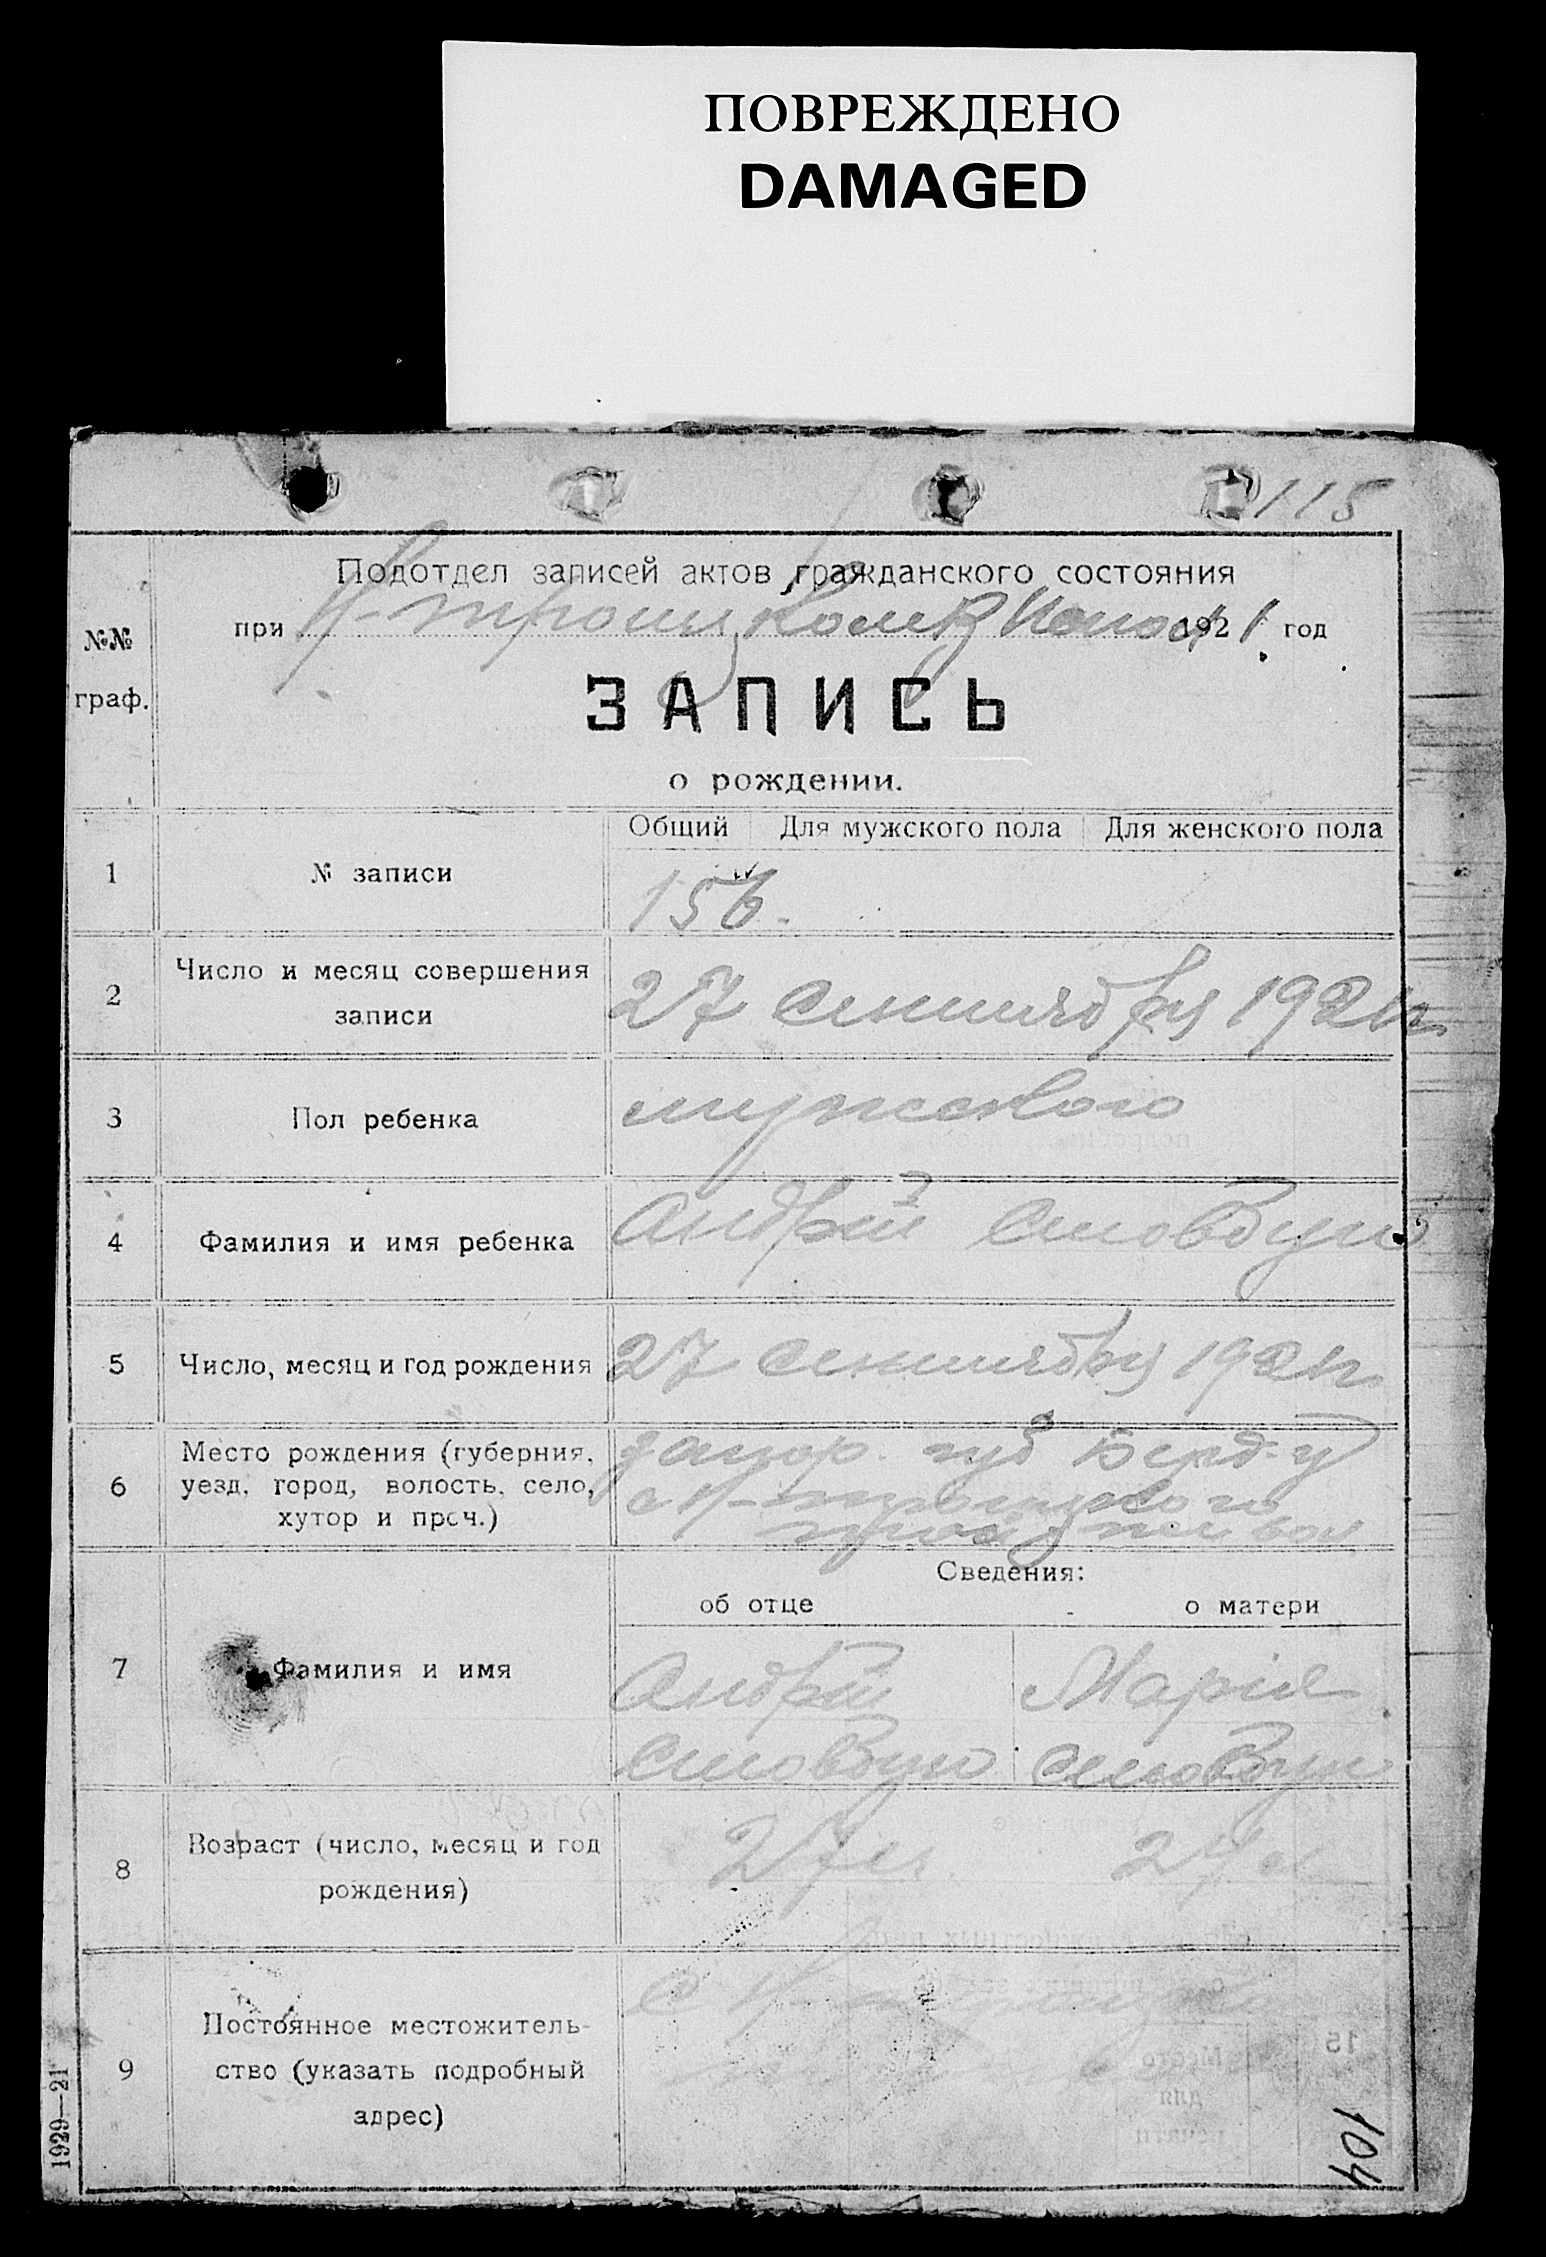 ПОВРЕЖДЕНО
DAMAGED
115
Подотдел записей актов гражданского состояния
при Н-троицком 1921 год
№№ граф.
ЗАПИСЬ
о рождении.
Общий Для мужского пола Для женского пола
1 № записи
156.
2 Число и месяц совершения записи
27 сентября 1921 г.
3 Пол ребенка
мужского
4 Фамилия и имя ребенка
Андрій Стовбун
5 Число, месяц и год рождения
27 сентября 1921 г.
6 Место рождения (губерния, уезд, город, волость, село, хутор и проч.)
запор. губ Берд. у
с Н-троицкого
Сведения:
об отце о матери
7 Фамилия и имя
Андрій Марія
Стовбун Стовбун
8 Возраст (число, месяц и год рождения)
27 л. 24 л
9 Постоянное местожитель-
ство (указать подробный
адрес)
с Н-
1929—21
104